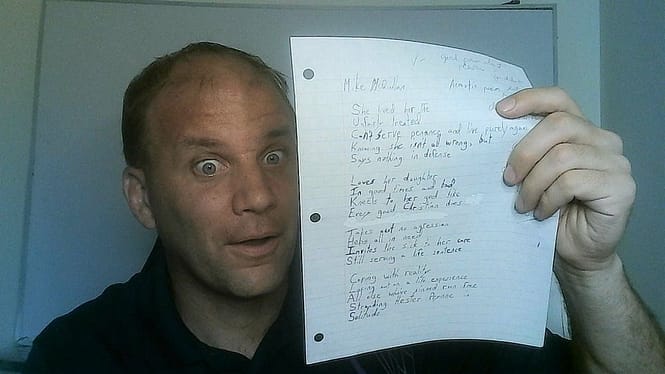 Mike
Acrostic poem
good
She lived for life
treated
serve penance and live purely again
Knowing she isnt all wrong, but
Says nothing in defense
Loves her daughter
In good times and bad
Kneels to her god like
Every good Christian does
Takes out no agression
Helps all in need
Invites the sick to their care
Still serving a life sentence
Coping with reality
out on a life experience
All else where sinned run free
Stranding Hester Prinne
Solitude